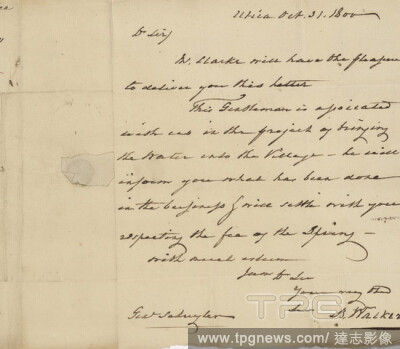 Utica Oct. 31. 1800
Dr Sir,
Mr. Clarke will have the pleasure
to deliver you this letter
This Gentleman is associated
with us in the project of bringing
the Water into the Village - he will
inform you what has been done
in the business & will settle with you
respecting the fee of the Spring -
with much esteem
I am Dr Sir
Your very Hble
Ser
B. Walker
Genl Schuyler
TPG
www.tpgnews.com / 達志影像